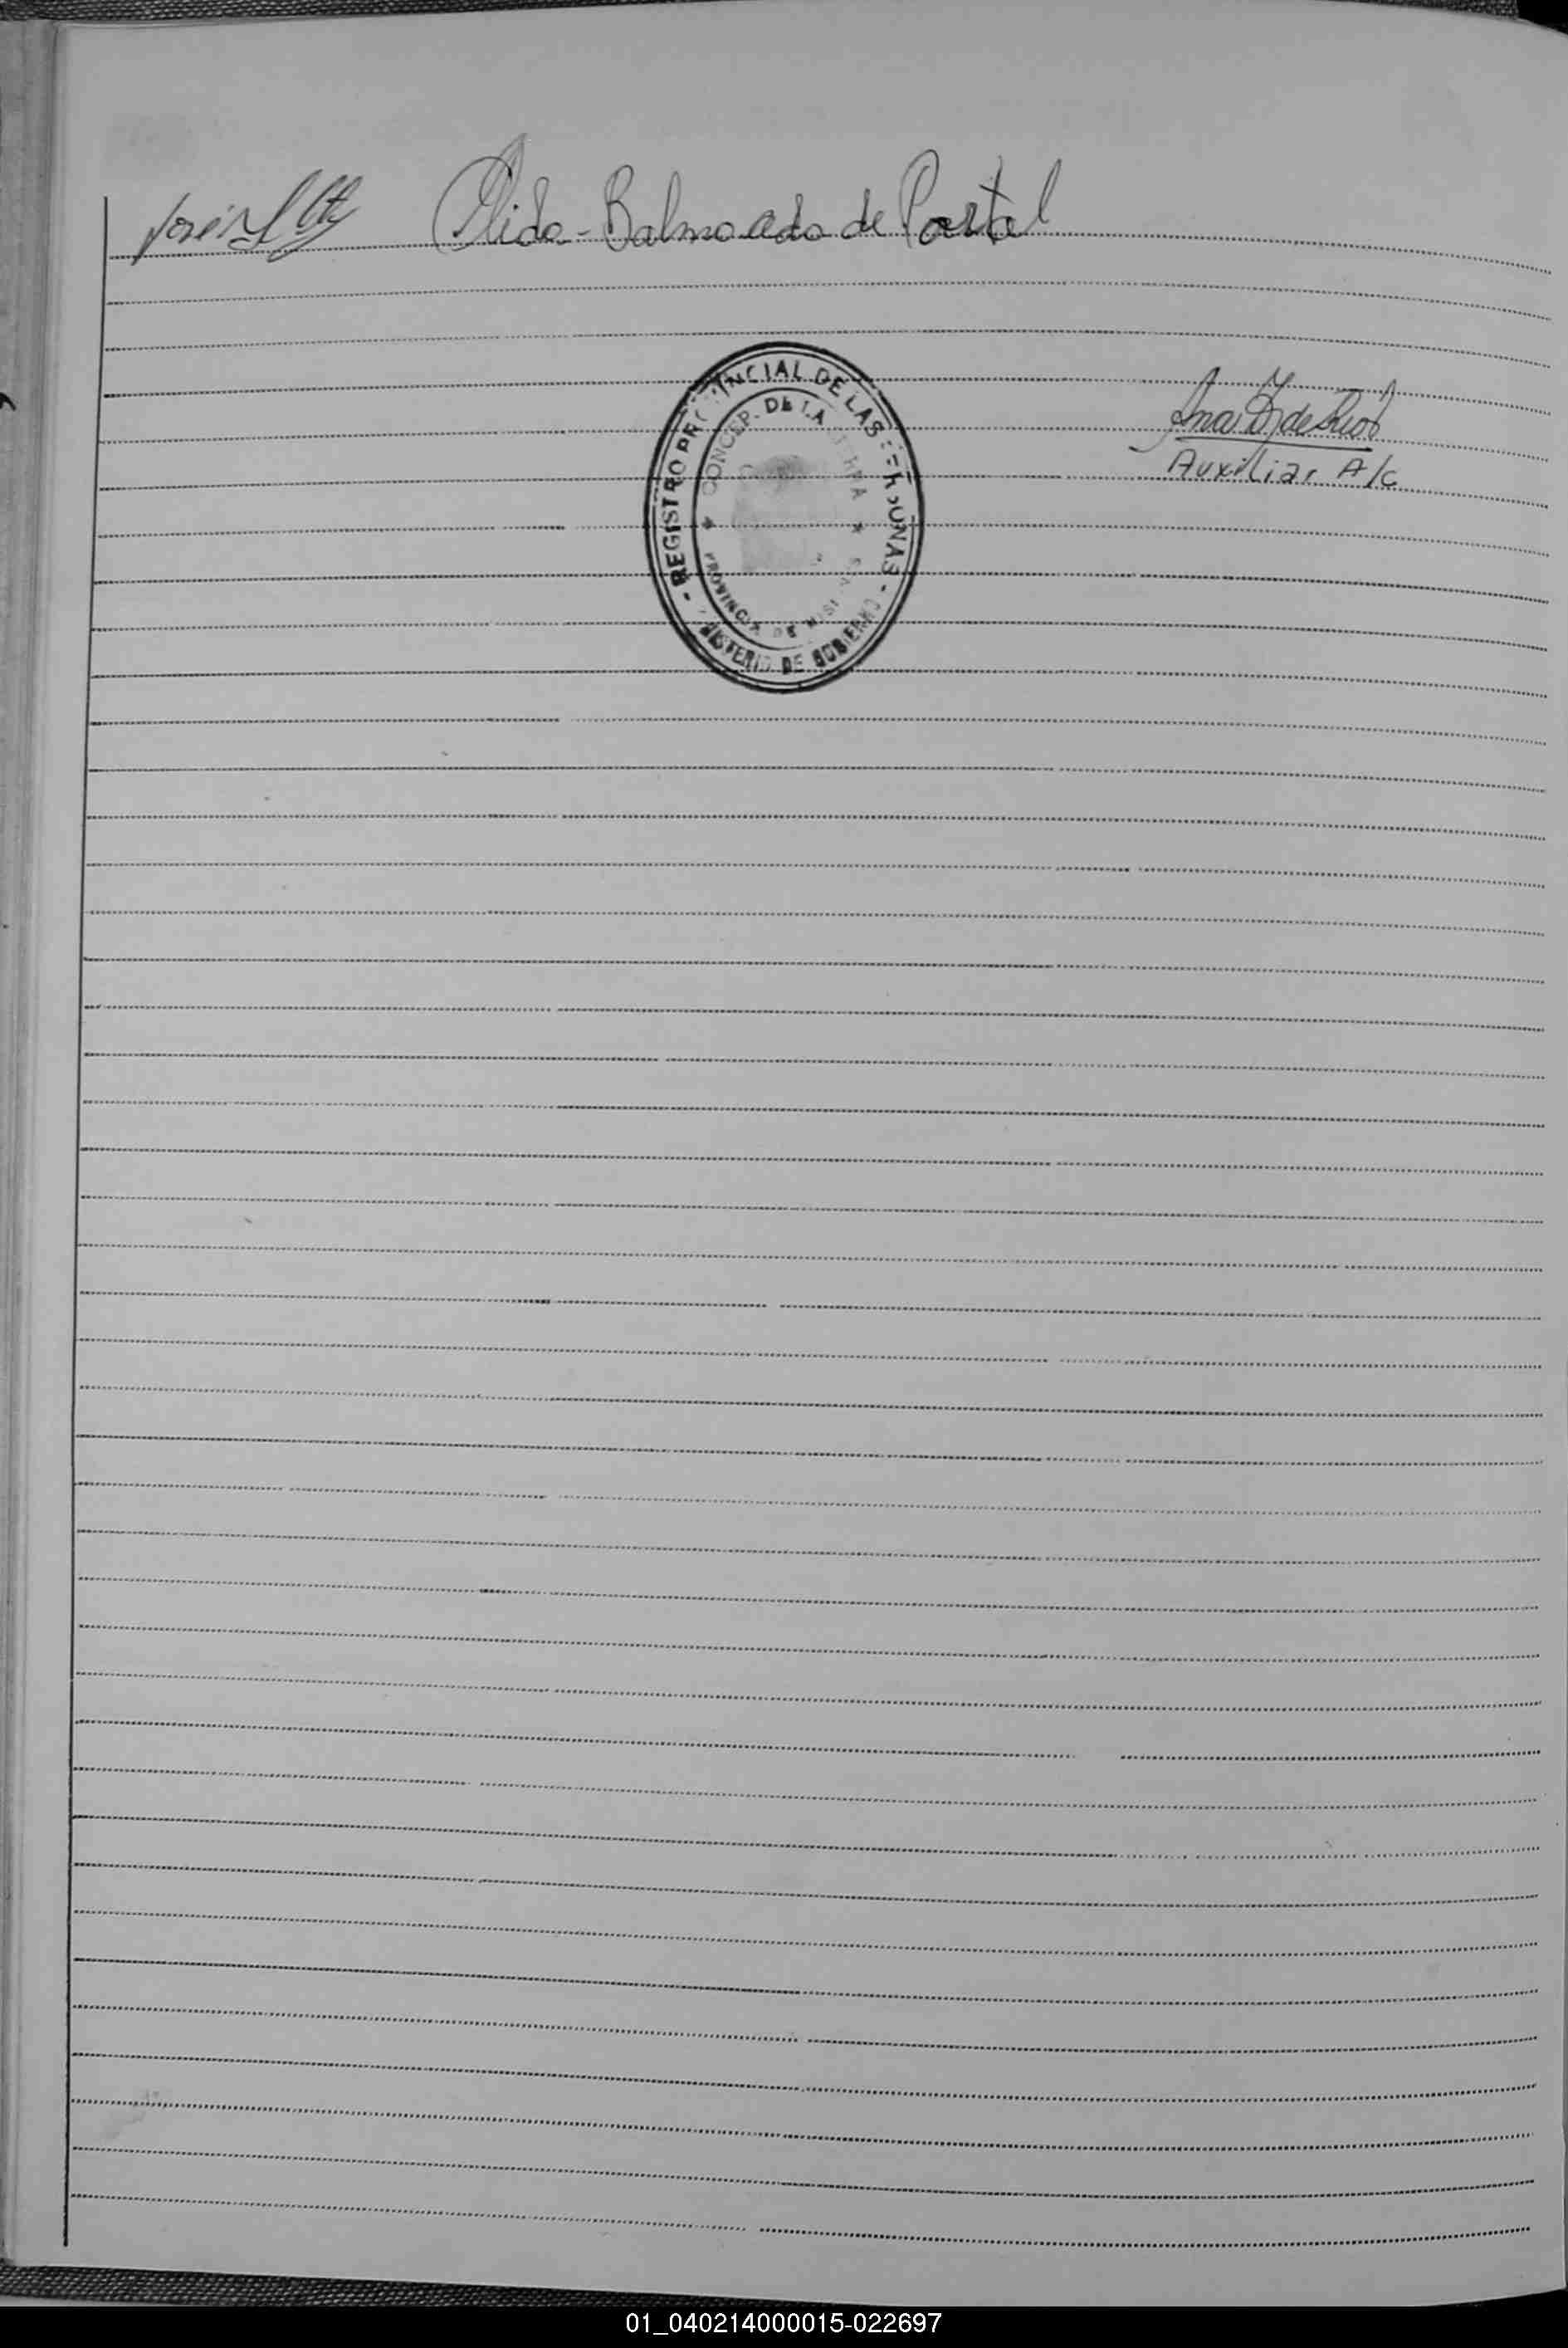 Olida - Balmaceda de Portal
REGISTRO PROVINCIAL DE LAS PERSONAS -
CONCEP. DE LA SIERRA
PROVINCIA DE MISIONES
MINISTERIO DE GOBIERNO -
Ana
Auxiliar A/c
01_040214000015-022697